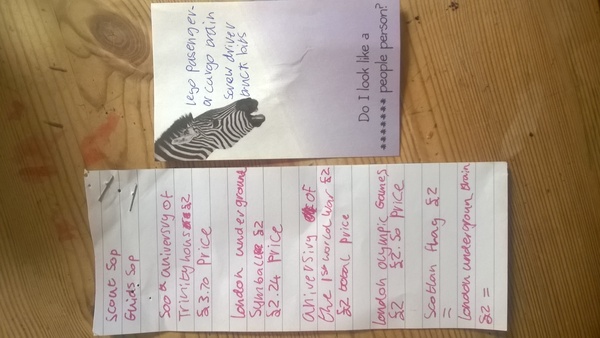 Scout Sop
Guids Sop
500th aniversary of
Trinity hous £2
£3.70 Price
London underground
Symbal £2
£2.24 Price
aniversiry of
the 1st world war £2
£2 total price
London olympic games
£2 £2:50 Price
Scotlan flag £2
=
London undergroun train
£2 =
lego pasenger-
or cargo train
screw driver
truck bits
Do I look like a
people person?